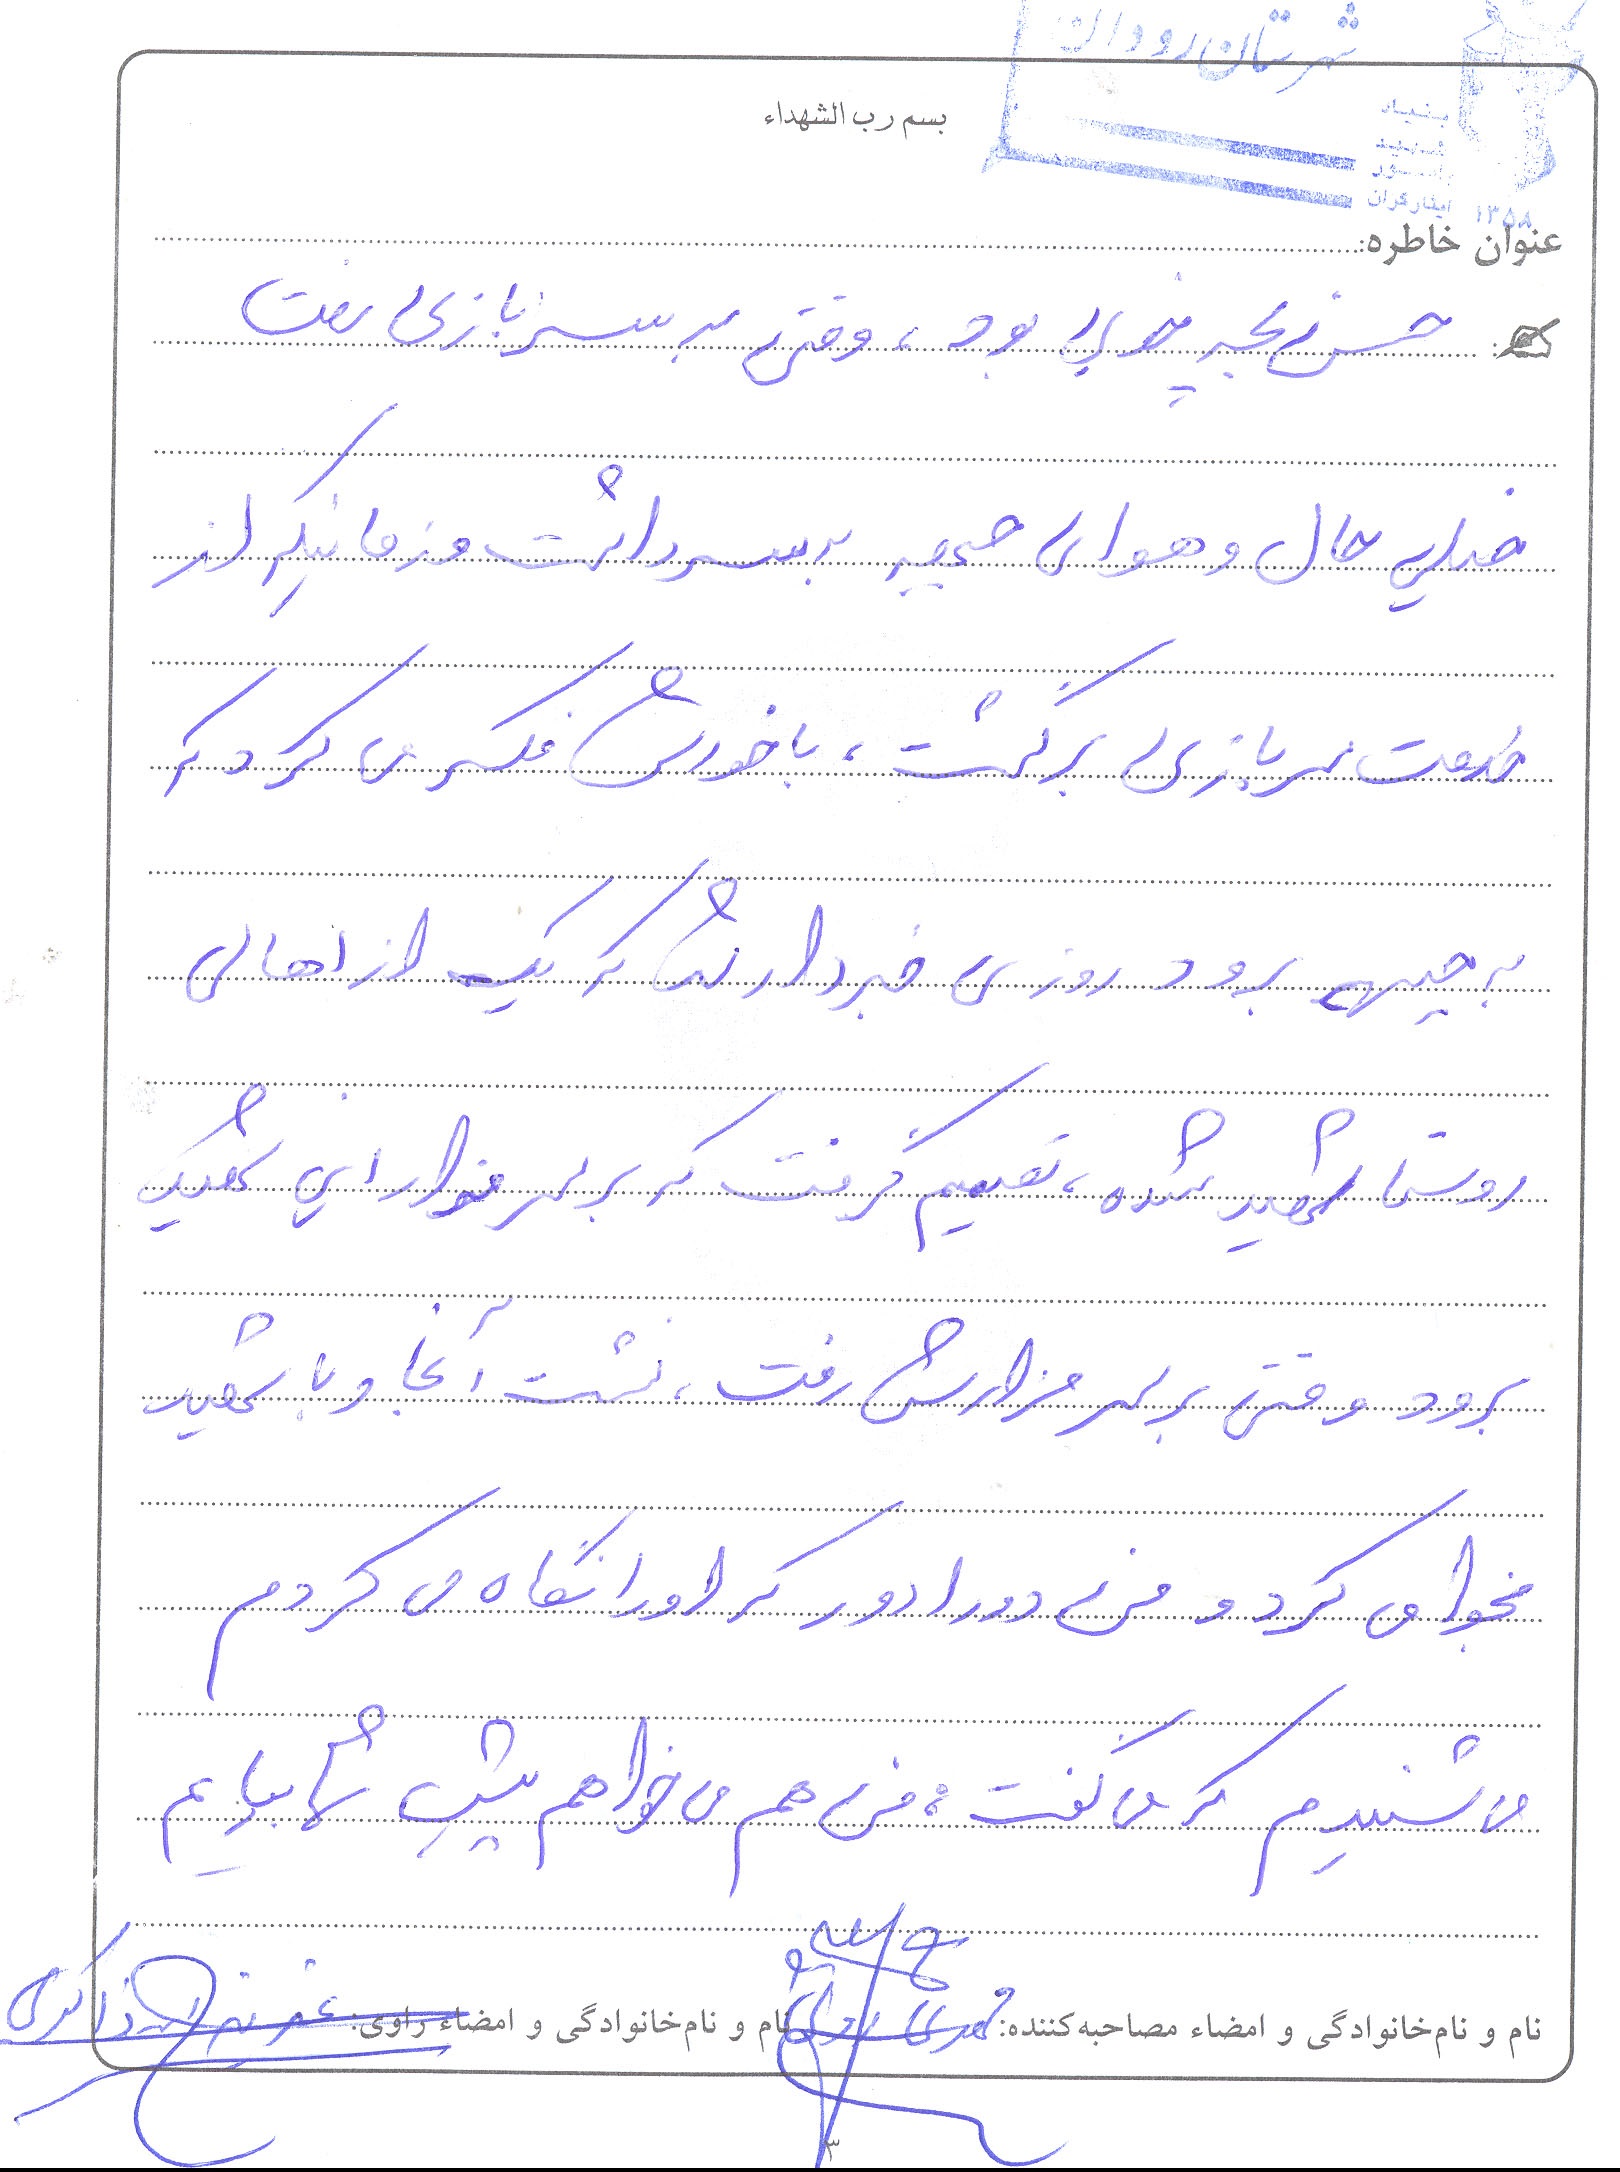 شهرستان رودان
بسم رب الشهداء
بنیاد
شهید
و امور
ایثارگران ۱۳۵۸
عنوان خاطره:
حسن بچه خوبی بود ، وقتی به سربازی رفت
خیلی حال و هوای جبهه به سر داشت و زمانیکه از
خدمت سربازی برگشت ، با خودش فکر می کرد که
به جبهه برود روزی خبردار شد که یکی از اهالی
روستا شهید شده ، تصمیم گرفت که بر سر مزار این شهید
برود وقتی بر سر مزارش رفت ، نشست آنجا و با شهید
نجوا می کرد و من دورادور که او را نگاه می کردم
می شنیدم که می گفت : من هم می خواهم پیش شما بیایم
نام و نام‌خانوادگی و امضاء مصاحبه‌کننده: نام و نام‌خانوادگی و امضاء راوی: ذاکری
۳